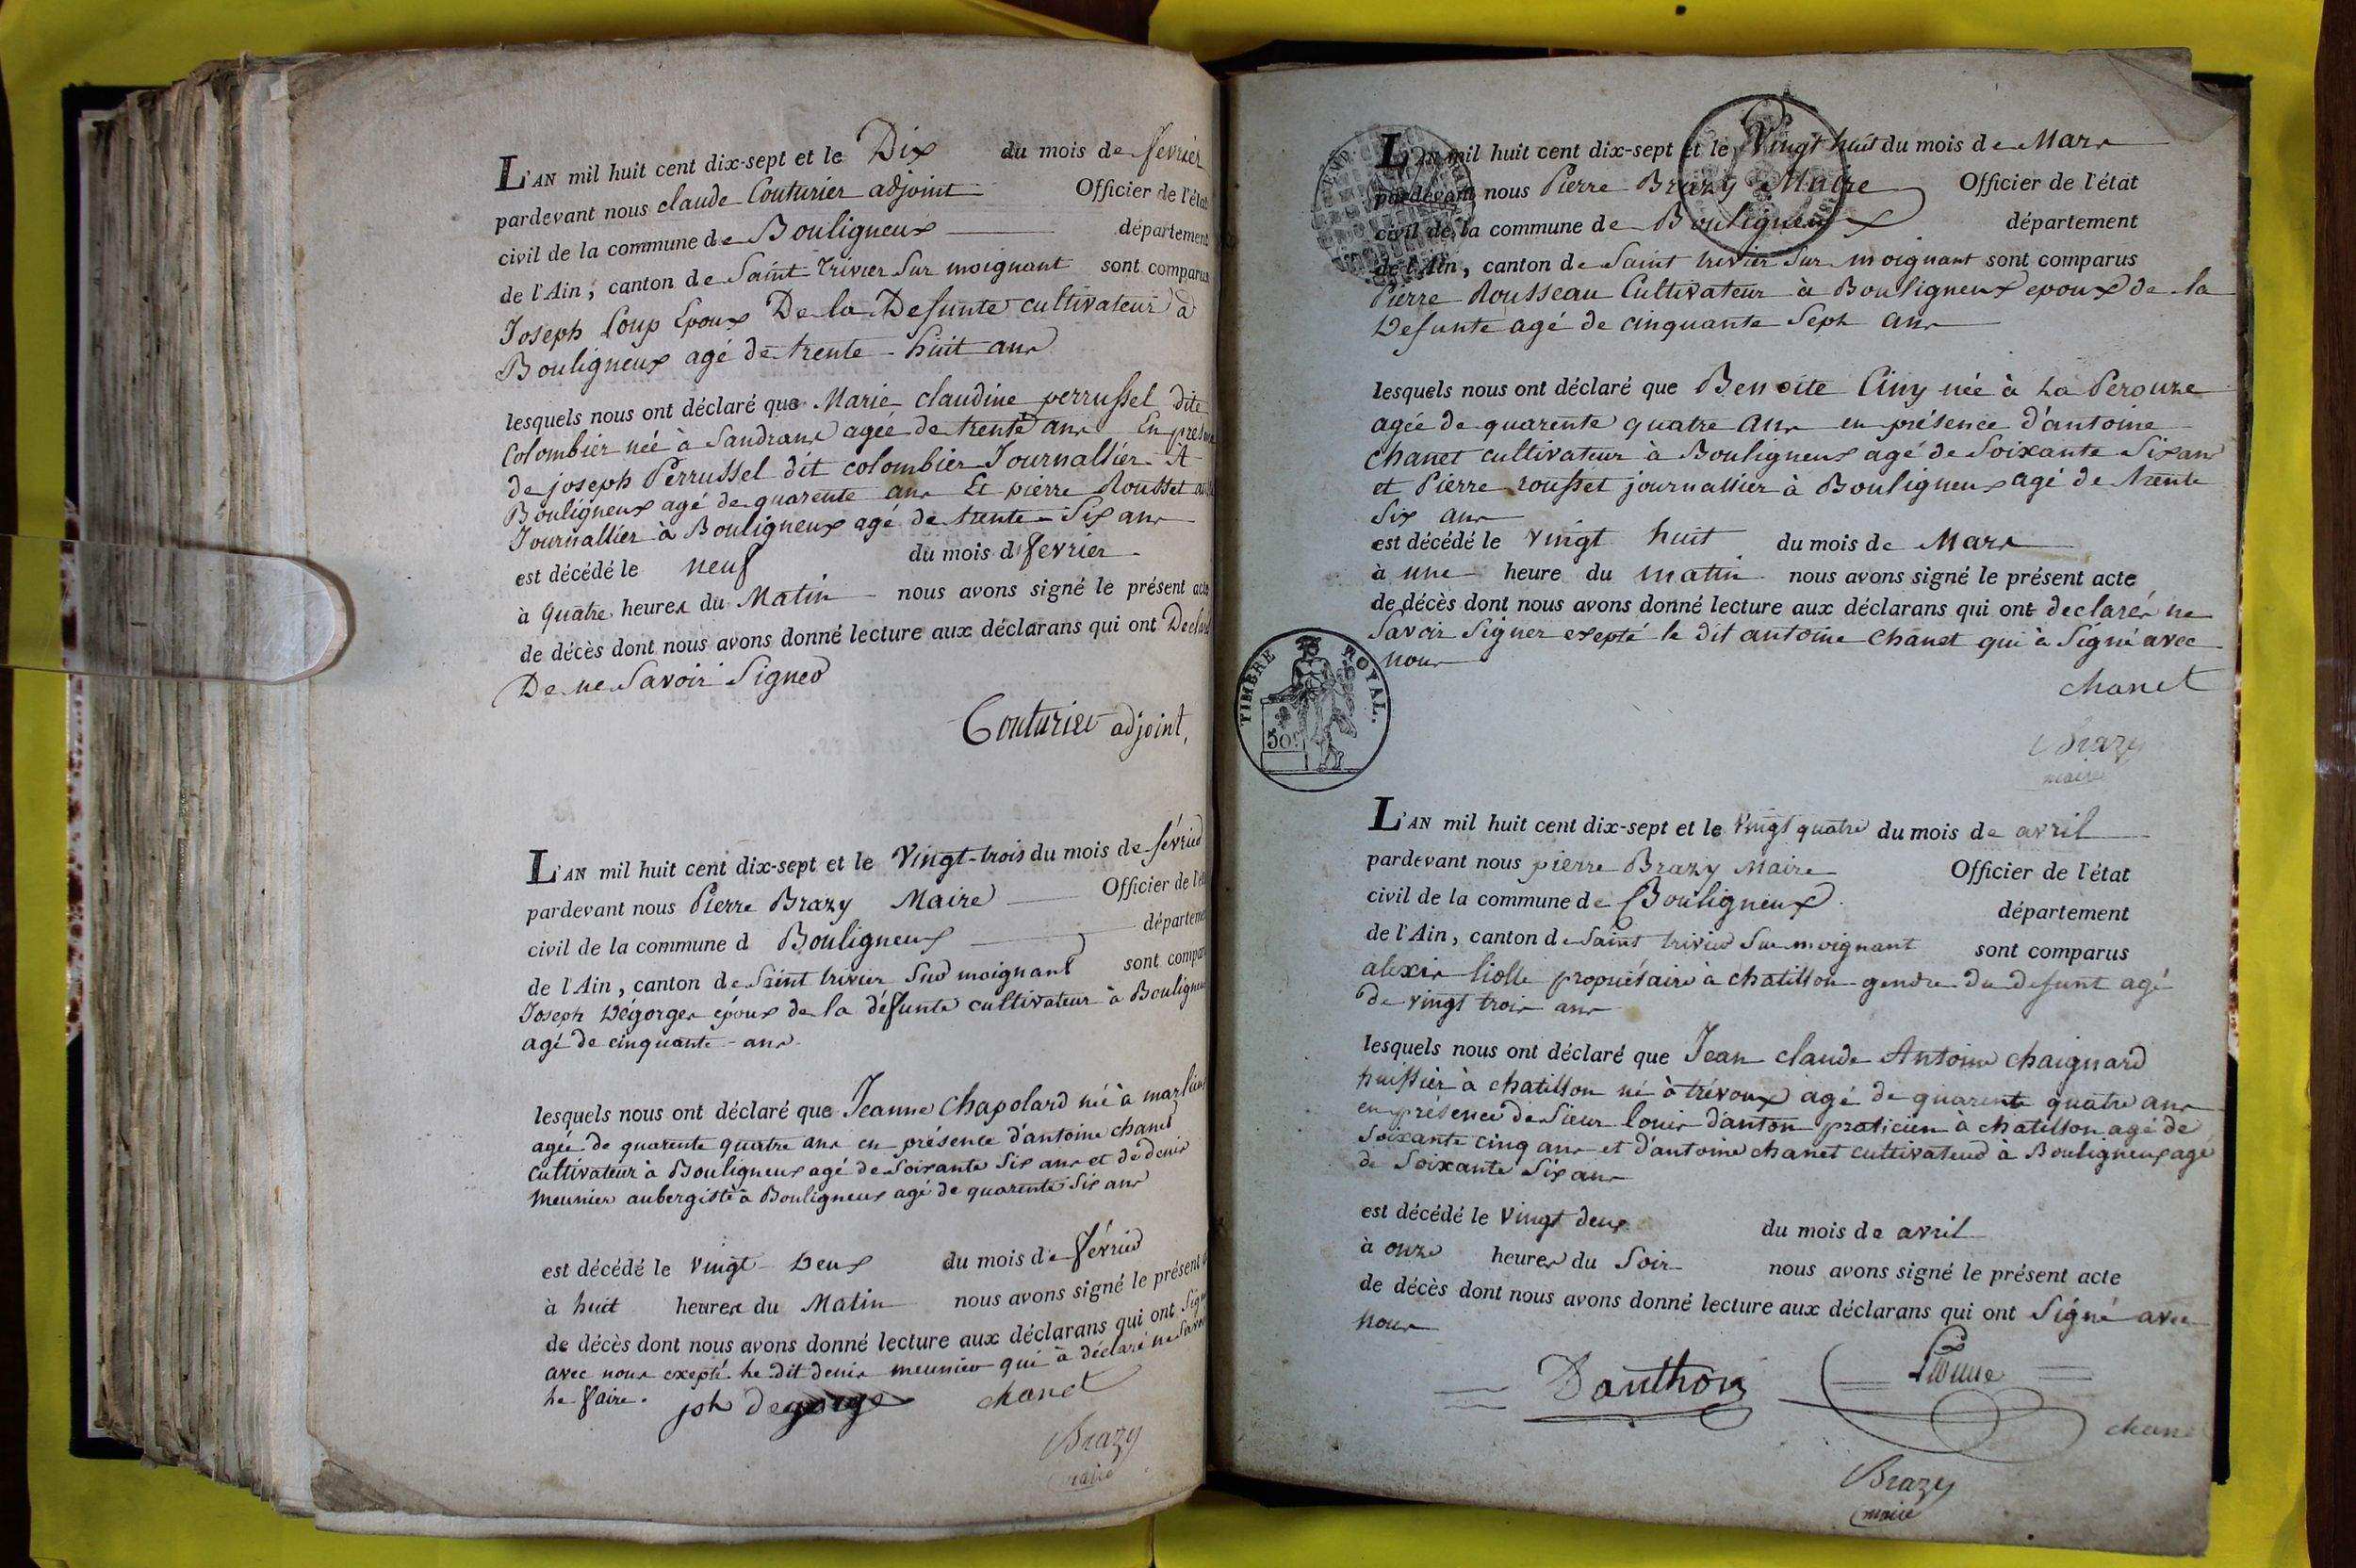 L'AN mil huit cent dix-sept et le Dix du mois de fevrier
pardevant nous claude Couturier adjoint Officier de l'état
civil de la commune de Bouligneux département
de l'Ain, canton de Saint Trivier Sur moignant sont comparus
Joseph Loup Epoux De la Defunte cultivateur a
Bouligneux agé de trente-huit ans
lesquels nous ont déclaré que Marie claudine perrussel dite
Colombier née à Sandrans agée de trente ans En
de joseph Perrussel dit colombier Journallier A
Bouligneux agé de quarente ans Et pierre Rousset
Journallier à Bouligneux agé de trente-Six ans
est décédé le neuf du mois d fevrier
à quatre heures du Matin nous avons signé le présent acte
de décès dont nous avons donné lecture aux déclarans qui ont
De ne Savoir Signer
Couturier adjoint,
L'AN mil huit cent dix-sept et le Vingt-trois du mois de février
pardevant nous Pierre Brazy Maire Officier de
civil de la commune d Bouligneux
de l'Ain, canton de Saint trivier Sur moignant sont
Joseph Dégorges époux de la défunte cultivateur à
agé de cinquante-ans
lesquels nous ont déclaré que Jeanne Chapolard né à
agée de quarente quatre ans en présence d'antoine chanet
cultivateur à Bouligneux agé de Soixante Six ans et de denis
meunier aubergiste à Bouligneux agé de quarente Six ans
est décédé le vingt Deux du mois de février
à huit heures du Matin nous avons signé le présent
de décès dont nous avons donné lecture aux déclarans qui ont
avec nous exepté le dit denis meunier qui à déclaré ne
le faire.
jph degorge chanet
Brazy
maire
L'AN mil huit cent dix-sept et le Vingt huit du mois de Mars
pardevant nous Pierre Brazy Maire Officier de l'état
civil de la commune de Bouligneux département
de l'Ain, canton de Saint trivier Sur moignant sont comparus
Pierre Rousseau Cultivateur à Bouligneux epoux de la
Defunte agé de cinquante Sept ans
lesquels nous ont déclaré que Benoite Ciny née à La Perouze
agée de quarente quatre ans en présence d'antoine
chanet cultivateur à Bouligneux agé de Soixante Six ans
et Pierre rousset journallier à Bouligneux agé de trente
Six ans
est décédé le vingt huit du mois de Mars
à une heure du matin nous avons signé le présent acte
de décès dont nous avons donné lecture aux déclarans qui ont declarés ne
Savoir Signer exepté le dit antoine chanet qui à Signé avec
nous
chanet
Brazy
maire
TIMBRE ROYAL.
50
L'AN mil huit cent dix-sept et le Vingt quatre du mois de avril
pardevant nous pierre Brazy Maire Officier de l'état
civil de la commune de Bouligneux département
de l'Ain, canton de Saint trivier Sur moignant sont comparus
alexis liolle propriétaire à chatillon gendre du defunt agé
de vingt trois ans
lesquels nous ont déclaré que Jean claude Antoine chaignard
huissier à chatillon né à trévoux agé de quarente quatre ans
en présence de Sieur louis d'anton praticien à chatillon agé de
Soixante cinq ans et d'antoine chanet cultivateur à Bouligneux agé
de Soixante Six ans
est décédé le Vingt deux du mois de avril
à onze heures du Soir nous avons signé le présent acte
de décès dont nous avons donné lecture aux déclarans qui ont Signé avec
nous
Danthon
chanet
Brazy
maire